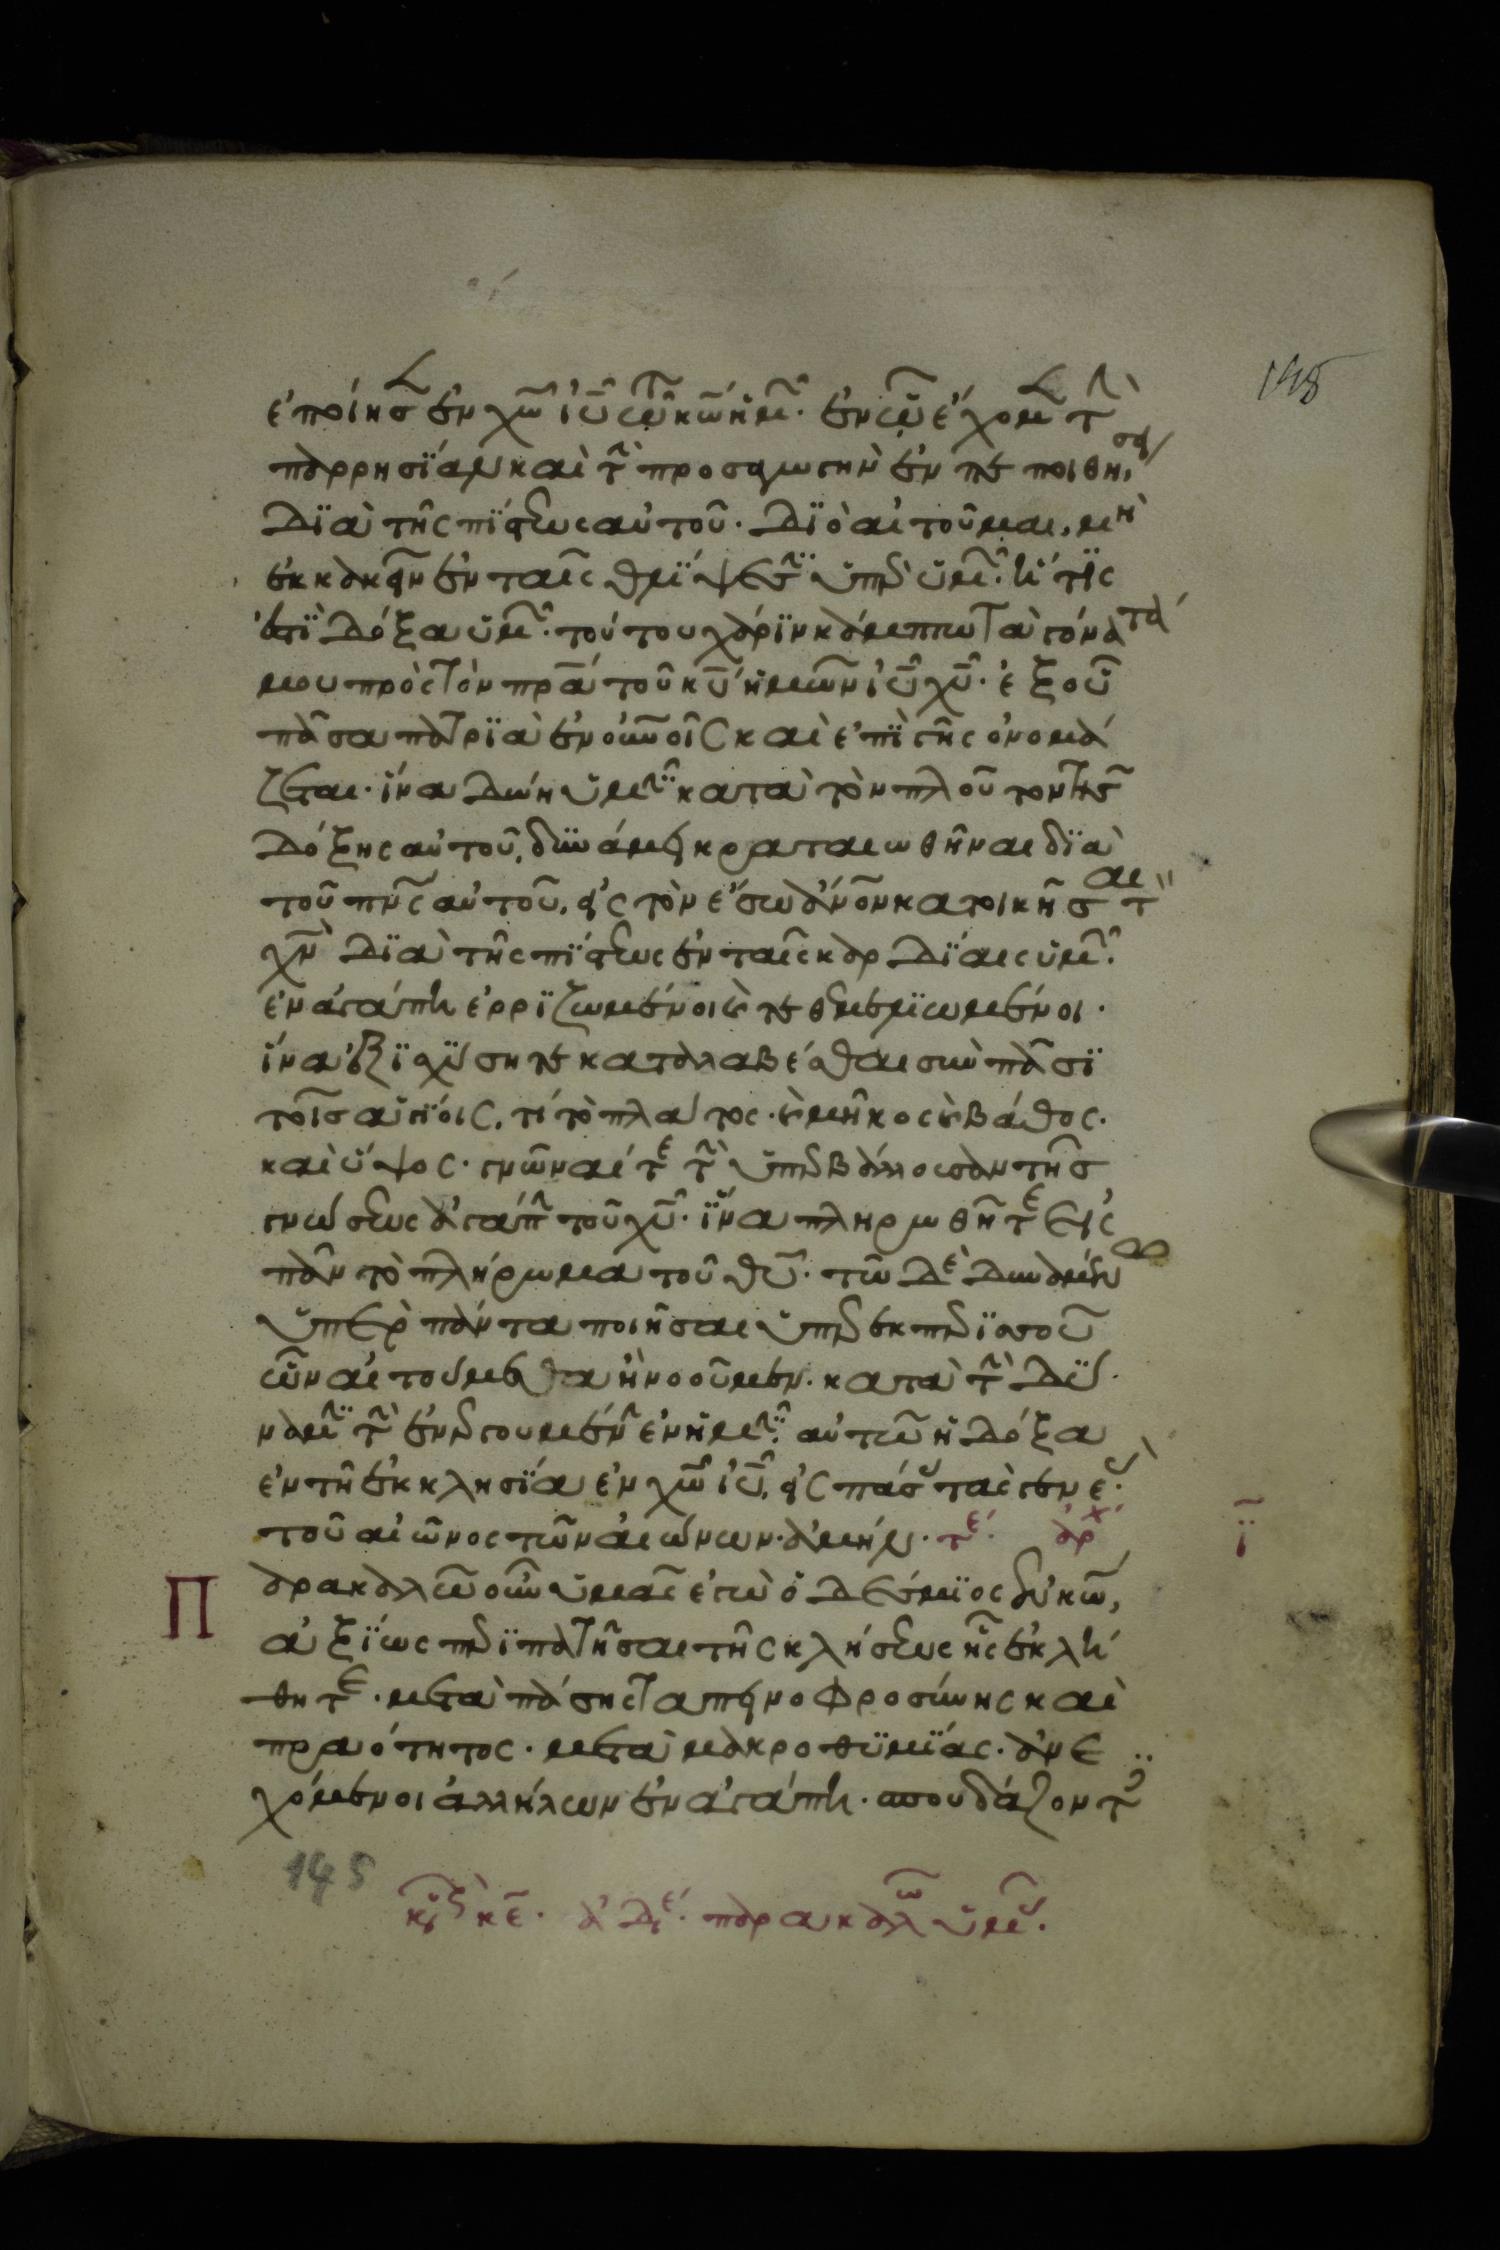 148
ἐποίησεν ἐν χω ιυ τω κω ἡμῶν. ἐν ὧ ἔχομεν τὴν
παρρησίαν καὶ τὴν προσαγωγὴν ἐν πεποιθήσει
διὰ τῆς πίστεως αὐτοῦ. διὸ αἰτοῦμαι, μὴ
ἐκκακεῖν ἐν ταῖς θλίψεσιν ὑπὲρ ὑμῶν. ἥτις
ἐστὶ δόξα ὑμῶν. τούτου χάριν κάμπτω τὰ γόνατά
μου πρὸς τὸν πρα τοῦ κυ ἡμῶν ιυ χυ. ἐξ οὗ
πᾶσα πατριὰ ἐν οὐνοῖς καὶ ἐπὶ γῆς ὀνομά
ζεται. ἵνα δώη ὑμῖν κατὰ τὸν πλοῦτον τῆς
δόξης αὐτοῦ, δυνάμει κραταιωθῆναι διὰ
τοῦ πνς αὐτοῦ, εἰς τὸν ἔσω ἀνον κατοικῆσαι τὸν
χν διὰ τῆς πίστεως ἐν ταῖς καρδίαις ὑμῶν.
ἐν ἀγάπη ἐρριζωμένοι καὶ τεθεμελιωμένοι.
ἵνα ἐξισχύσητε καταλαβέσθαι σὺν πᾶσι
τοῖς ἁγίοις, τί τὸ πλάτος. καὶ μῆκος καὶ βάθος.
καὶ ὕψος. γνῶναί τε τὴν ὑπερβάλλουσαν τῆς
γνώσεως ἀγάπην τοῦ χυ. ἵνα πληρωθῆτε εἰς
πᾶν τὸ πλήρωμα τοῦ θυ. τῶ δὲ δυναμένω
ὑπὲρ πάντα ποιῆσαι ὑπὲρ ἐκπερισσοῦ
ὧν αἰτούμεθα ἢ νοοῦμεν. κατὰ τὴν δύ
ναμιν τὴν ἐνεργουμένην ἐν ἡμῖν. αὐτῶ ἡ δόξα
ἐν τῆ ἐκκλησία ἐν χω ιυ, εἰς πάσας τὰς γενεὰς
τοῦ αἰῶνος τῶν αἰώνων. ἀμήν. τε. ἀρχ
ι
Παρακαλῶ οὖν ὑμᾶς ἐγὼ ὁ δέσμιος ἐν κω,
ἀξίως περιπατῆσαι τῆς κλήσεως ἧς ἐκλή
θητε. μετὰ πάσης ταπεινοφροσύνης καὶ
πραότητος. μετὰ μακροθυμίας. ἀνε
χόμενοι ἀλλήλων ἐν ἀγάπη. σπουδάζοντες
145
κυ κε. ἀδε. παρακαλῶ ὑμᾶς.